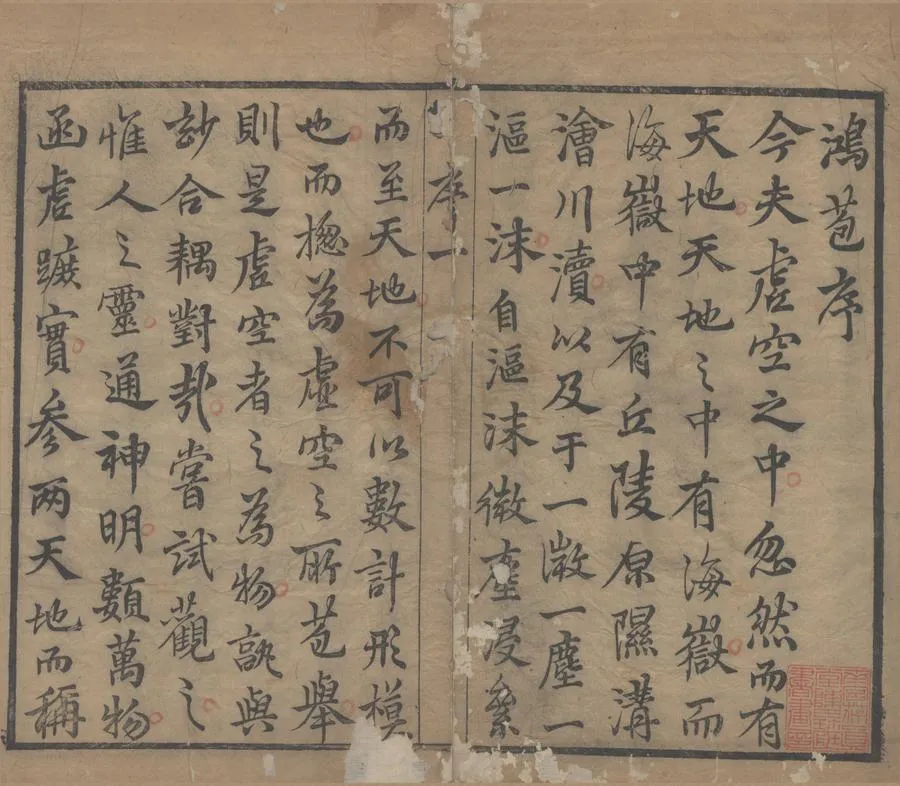 鴻苞序
今夫虛空之中忽然而有
天地天地之中有海嶽而
海嶽中有丘陵原隰溝
澮川瀆以及于一微一塵一
漚一沫自漚沫微塵浸絫
序一
而至天地不可以數計形模
也而揔為虛空之所苞舉
則是虛空者之為物孰與
玅合耦對哉嘗試觀之
惟人之靈通神明類萬物
函虛蹠實参两天地而稱